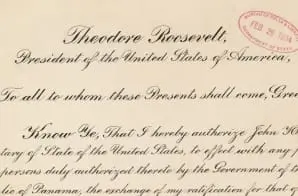 Theodore Roosevelt,
President of the United States of America,
FEB 29 1904
To all to whom these Presents shall come, Gree
Know Ye, That I hereby authorize John H
tary of State of the United States, to effect with any
persons duly authorized thereto by the Government of
lic of Panama, the exchange of my ratification for that of